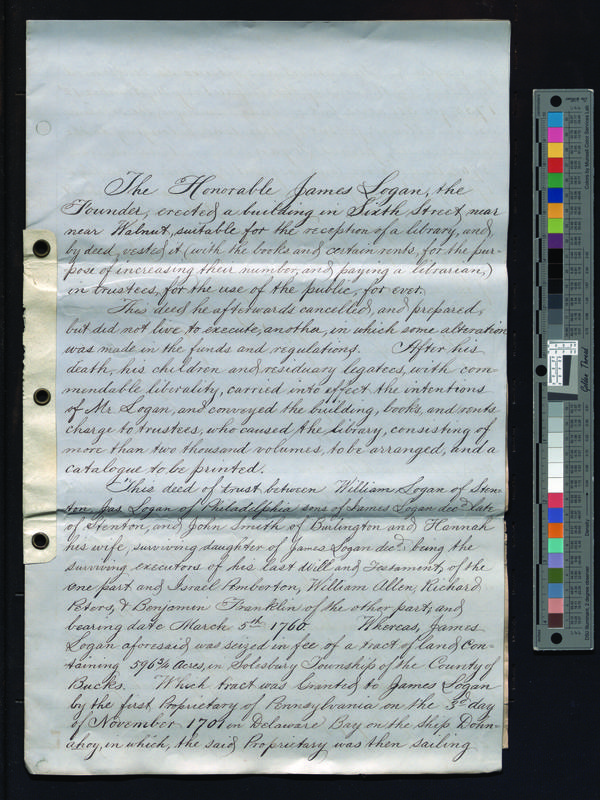 The Honorable James Logan, the
Founder, erected a building in Sixth Street, near
near Walnut, suitable for the reception of a library, and
by deed, vested it (with the books and certain rents, for the pur-
pose of increasing their number, and paying a librarian,)
in trustees, for the use of the public, for ever.
This deed he afterwards cancelled, and prepared,
but did not live to execute, another, in which some alteration
was made in the funds and regulations. After his
death, his children and residuary legatees, with com-
mendable liberality, carried into effect the intentions
of Mr. Logan, and conveyed the building, books, and rents
charge to trustees, who caused the library, consisting of
more than two thousand volumes, to be arranged, and a
catalogue to be printed.
This deed of trust between William Logan of Sten-
ton, Jas Logan of Philadelphia sons of James Logan decd late
of Stenton, and John Smith of Burlington and Hannah
his wife, surviving daughter of James Logan decd. being the
surviving executors of his last Will and Testament, of the
one part and Israel Pemberton, William Allen, Richard
Peters, & Benjamin Franklin of the other part, and
bearing date March 5th 1760. Whereas, James
Logan aforesaid was seized in fee of a tract of land con-
taining 596¾ Acres, in Solesbury Township of the County of
Bucks. Which tract was Granted to James Logan
by the first Proprietary of Pennsylvania on the 3d day
of November 1701 in Delaware Bay on the Ship Doln-
ahoy, in which, the said Proprietary was then sailing